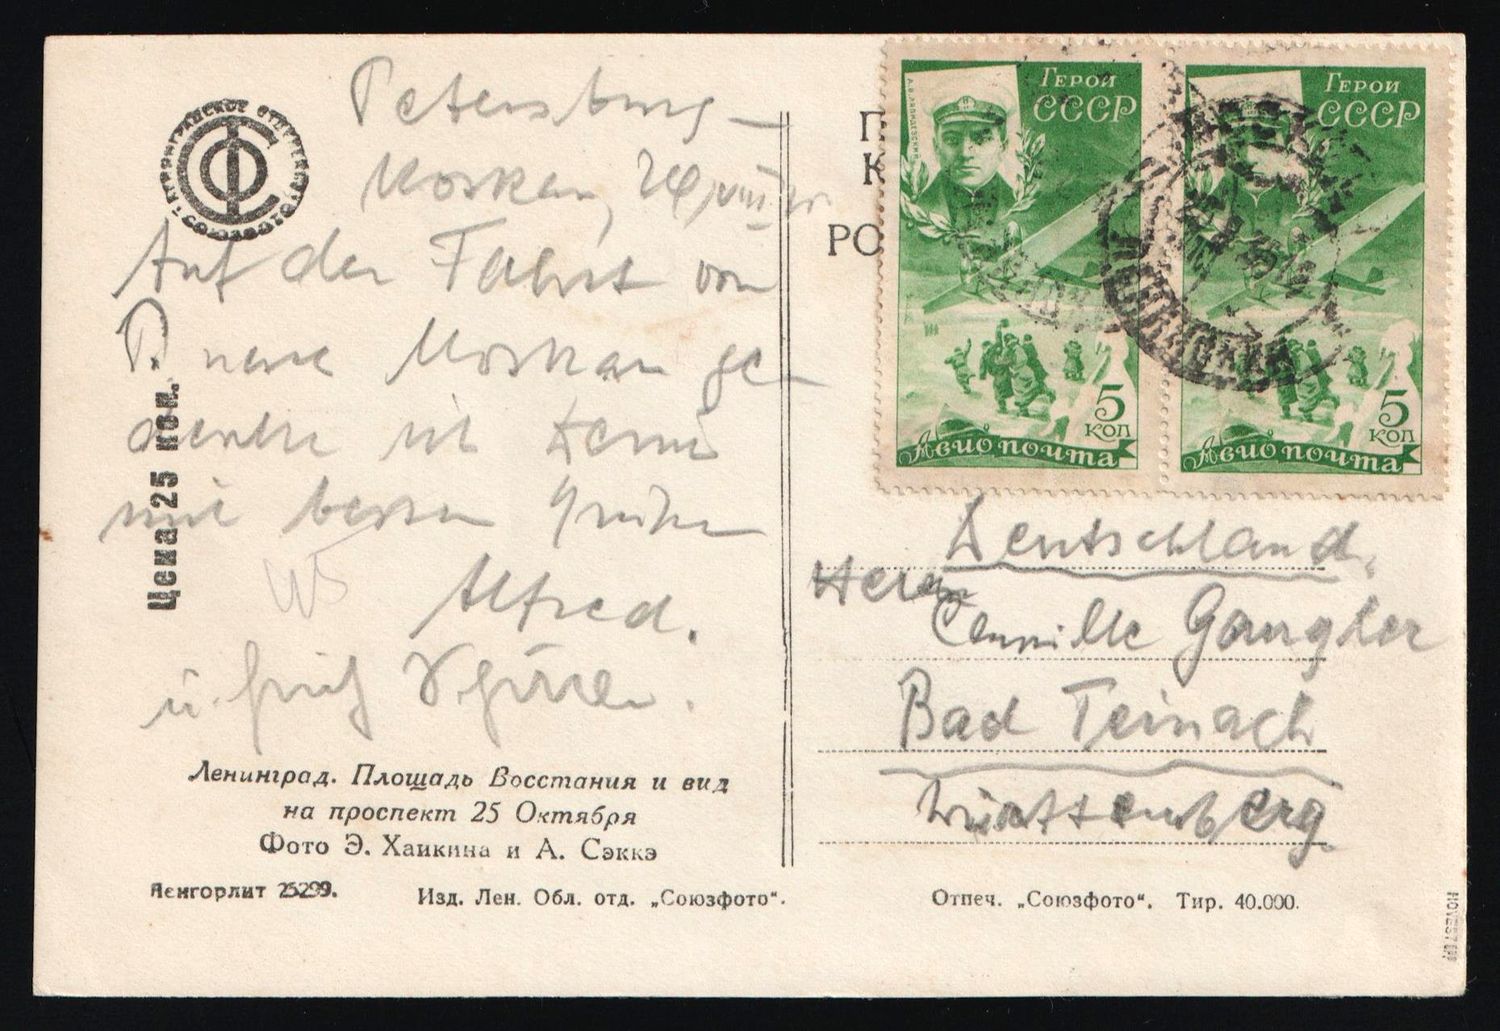 Petersburg –
Moskau,
Auf der Fahrt von
P. nach Moskau ge-
denke ich Deiner
mit besten Grüßen
Alfred.
u.
ЛЕНИНГРАДСКОЕ ОТДЕЛЕНИЕ
СОЮЗФОТО
СФ
Цена 25 коп.
Ленинград. Площадь Восстания и вид
на проспект 25 Октября
Фото Э. Хаикина и А. Сэккэ
Ленгорлит 25299.
Изд. Лен. Обл. отд. „Союзфото“.
П
К
РО
А.В.ЛЯПИДЕВСКИЙ
ГЕРОИ
СССР
5
КОП
Авиопочта
ГЕРОИ
СССР
5
КОП
Авиопочта
Deutschland,
Herrn
Camille Gaugler
Bad Teinach
Württemberg.
Отпеч. „Союзфото“. Тир. 40.000.